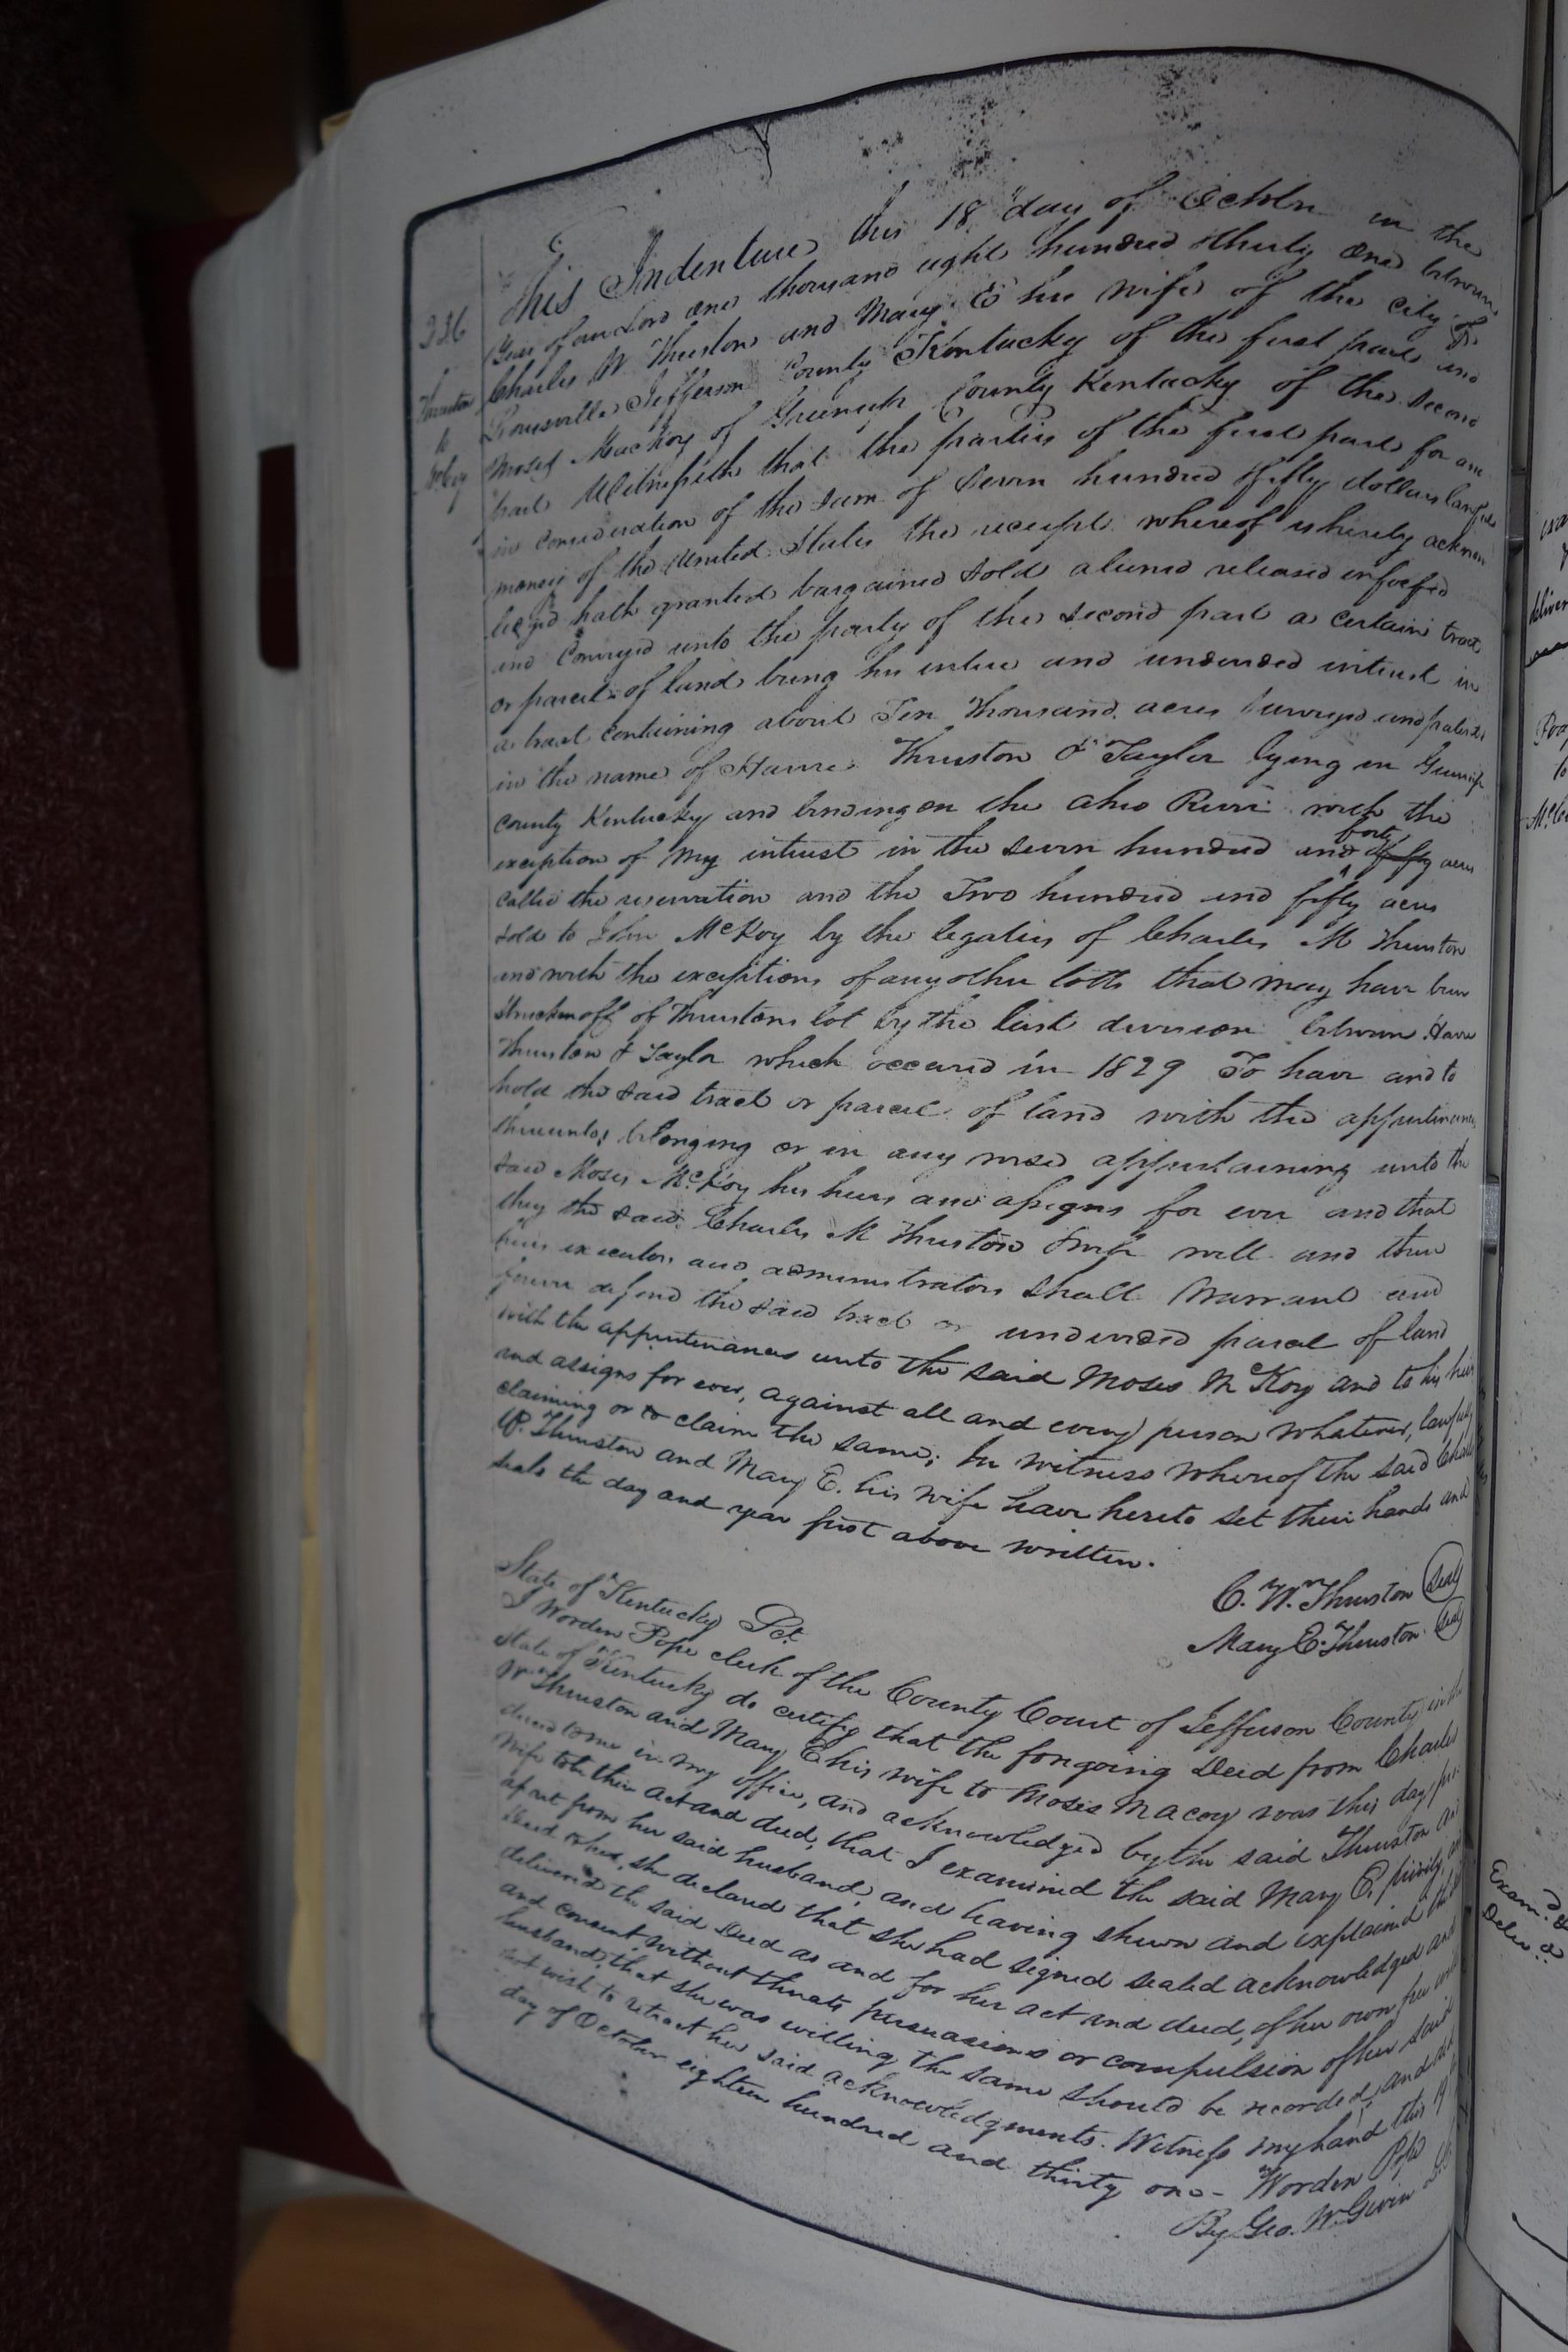 236
Thruston
to
McKoy
This Indenture this 18th day of October in the
Year of our Lord one thousand eight hundred thirty one between
Charles W Thruston and Mary E his wife of the city of
Louisville Jefferson County Kentucky of the first part and
Moses Mackoy of Greenup County Kentucky of the second
part Witnesseth that the parties of the first part for and
in consideration of the sum of Seven hundred fifty dollars lawful
money of the United States the receipt whereof is hereby acknow
ledged hath granted bargained sold aliened released enfeofed
and Conveyed unto the party of the second part a certain tract
or parcel of land being his entire and undivided interest in
a tract containing about Ten Thousand acres surveyed and patented
in the name of Thruston & Taylor lying in Greenup
county Kentucky and binding on the Ohio River with the
exception of my interest in the seven hundred and forty fifty acres
called the reservation and the Two hundred and fifty acres
sold to John McKoy by the legatees of Charles M Thruston
and with the exceptions of any other lotts that may have been
stricken off of Thrustons lot by the last division between
Thruston & Taylor which occured in 1829 To have and to
hold the said tract or parcel of land with the appurtenances
thereunto belonging or in any wise appertaining unto the
said Moses McKoy his heirs and assigns for ever and that
they the said Charles M Thruston & wife will and their
heirs executors and administrators shall Warrant and
forever defend the said tract or undivided parcel of land
with the appurtenances unto the said Moses McKoy and to his heirs
and assigns for ever, against all and every person whatever, lawfully
claiming or to claim the same; In witness whereof the said Charles
W. Thruston and Mary E. his wife have hereto set their hands and
seals the day and year first above written.
C. Wm Thruston (Seal)
Mary E. Thruston (Seal)
State of Kentucky Sct.
I Worden Pope clerk of the County Court of Jefferson County in the
State of Kentucky do certify that the foregoing Deed from Charles
Wm Thruston and Mary E his wife to Moses Macoy was this day pro
duced to me in my office, and acknowledged by the said Thruston and
Wife to be their act and deed, that I examined the said Mary E. privily, and
apart from her said husband, and having shewn and explained the
Deed to her, she declared that she had signed sealed acknowledged and
delivered the said Deed as and for her act and deed, of her own free will
and consent without threats persuasions or compulsion of her said
husband, that she was willing the same should be recorded, and did
not wish to retract her said acknowledgments. Witness my hand this 19
day of October eighteen hundred and thirty one— Worden Pope
By Geo. W. Givin
deliver
to
Exam.d &
Deliv.d